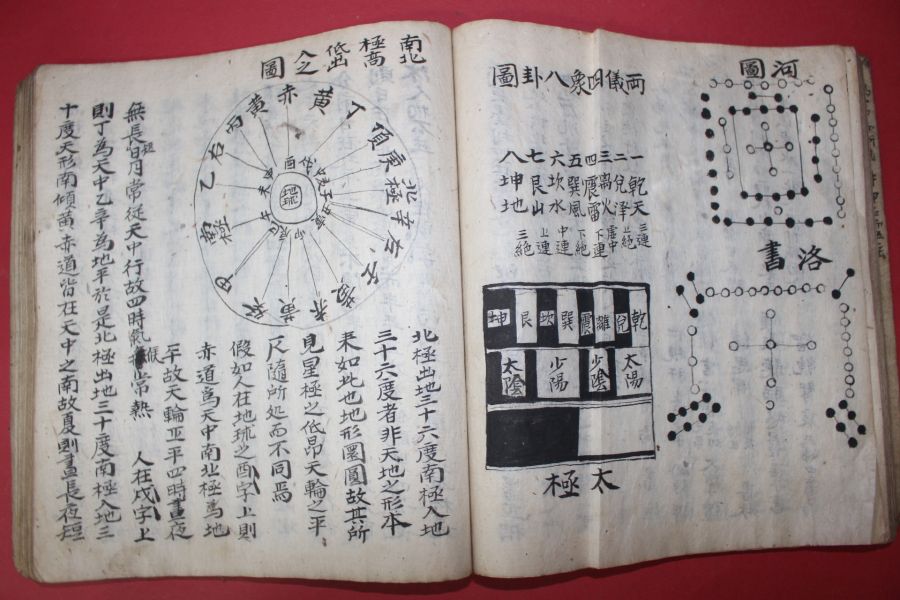 河圖
洛書
両儀四象八卦圖
一乾天三連
二兌澤上絕
三离火虛中
四震雷下連
五巽風下絕
六坎水中連
七艮山上連
八坤地三絕
乾兌離震巽坎艮坤
太陽少陰少陽太陰
太極
南北極高低出入之圖
赤
黃
丁
庚
北極
辛
左
黃
赤
黃
甲
南極
乙
右
丙
黃
地球
北極出地三十六度南極入地
三十六度者非天地之形本
来如此也地形圜圓故其所
見星極之低昂天輪之平
仄隨所处而不同焉
假如人在地琉之酉字上則
赤道為天中南北極為地
平故天輪亚平四時晝夜
無長短日月常從天中行故四時氣候常熱 人在戌字上
則丁為天中乙辛為地平於是北極出地三十度南極入地三
十度天形南傾黃赤道皆在天中之南故夏則晝長夜短